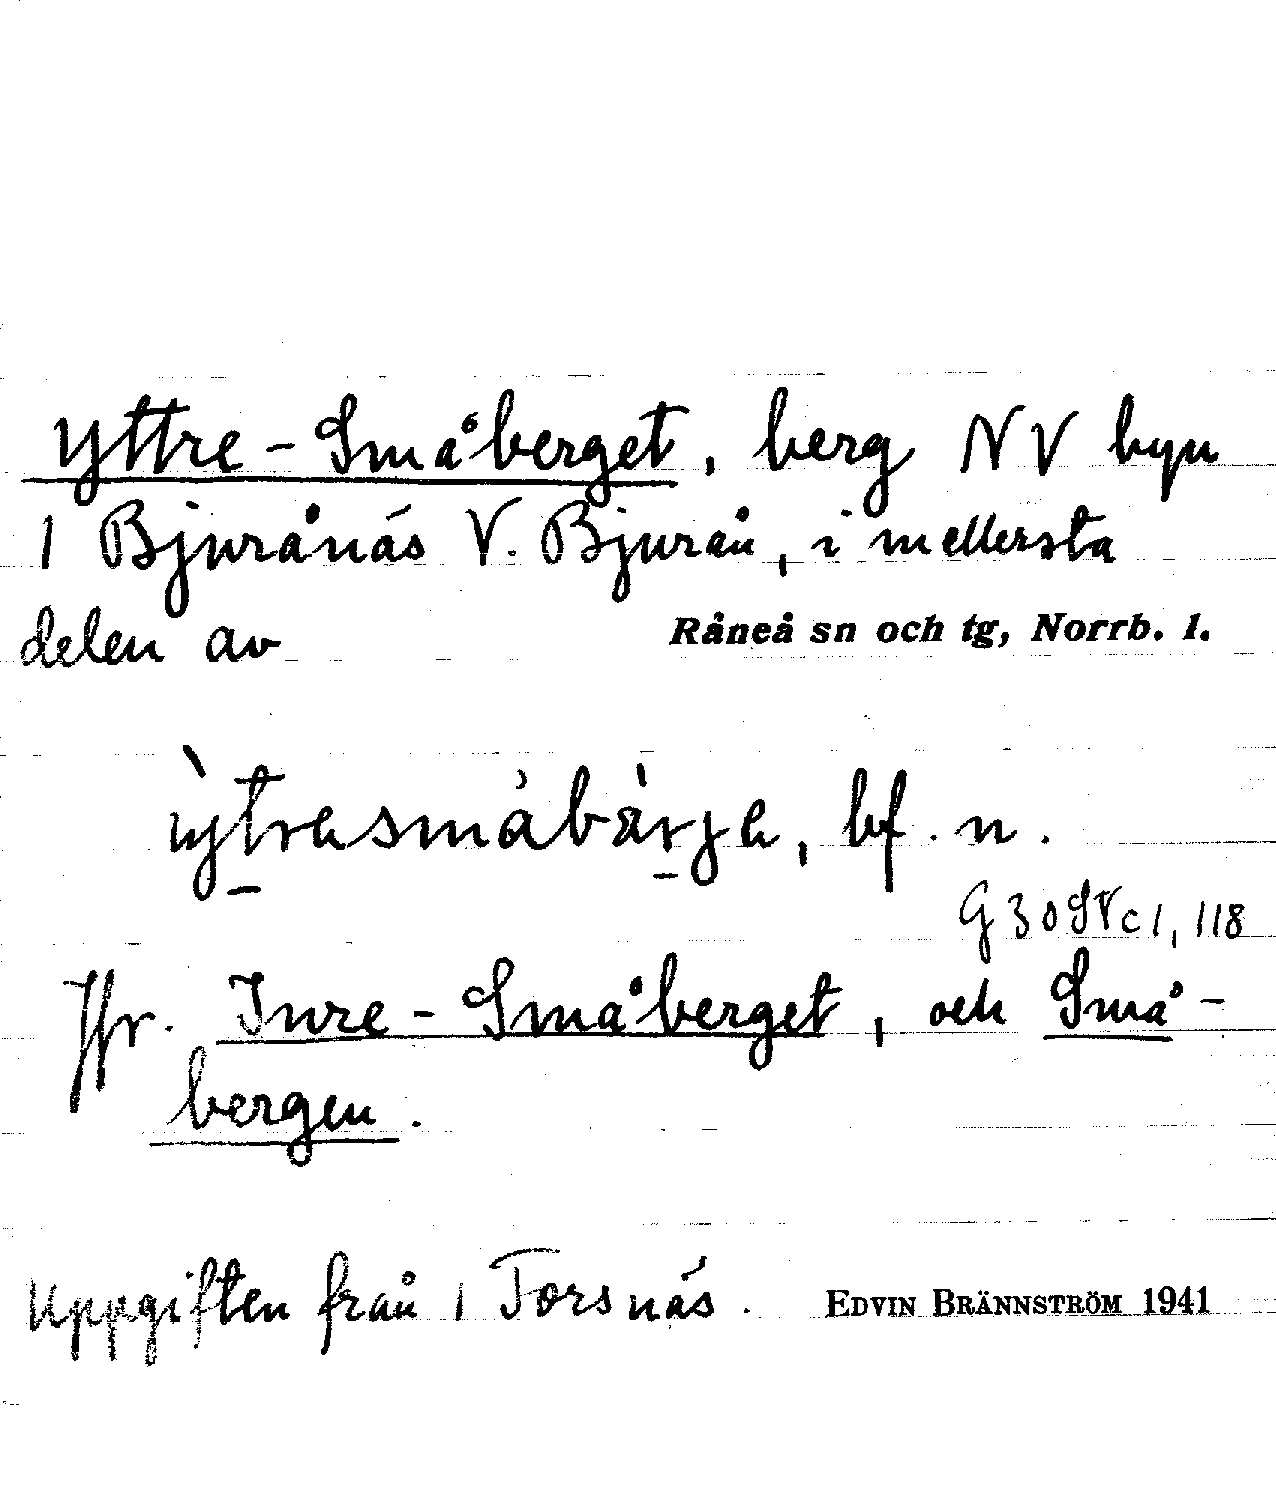 Yttre-Småberget, berg NV byn
1 Bjurånäs V. Bjurån, i mellersta
delen av Råneå sn och tg, Norrb. l.
bf. n.
G 30 SV c 1, 118
Jfr. Inre-Småberget, och Små-
bergen.
Uppgiften från 1 Torsnäs. EDVIN BRÄNNSTRÖM 1941